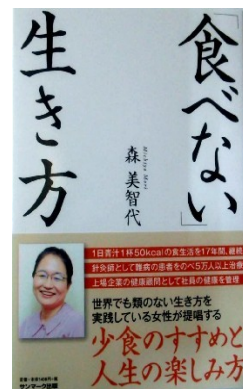 「食べない」
生き方
森美智代
Michiyo Mori
1日青汁1杯50kcalの食生活を17年間、継続
針灸師として難病の患者をのべ5万人以上治療
上場企業の健康顧問として社員の健康を管理
世界でも類のない生き方を
実践している女性が提唱する
少食のすすめと
人生の楽しみ方
サンマーク出版